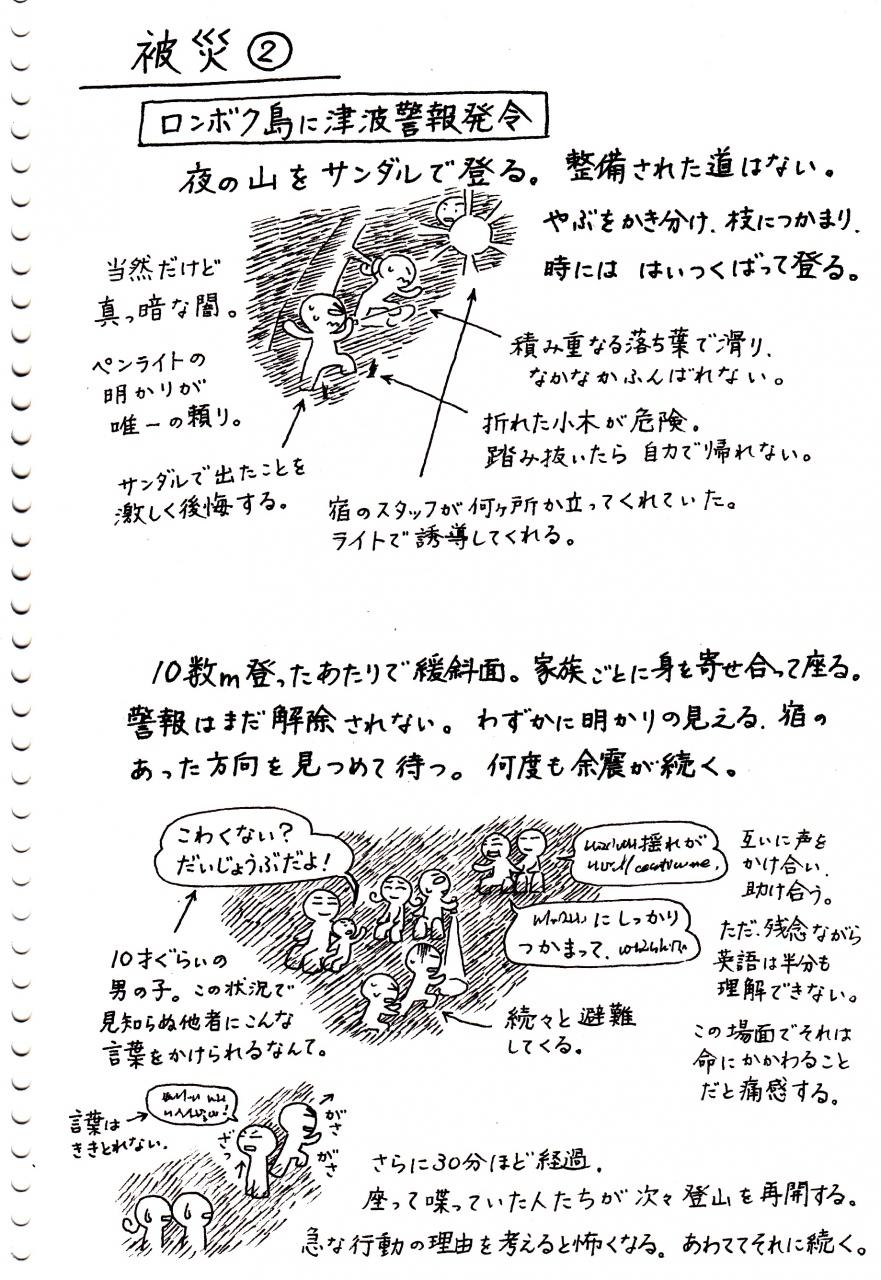 被災②
ロンボク島に津波警報発令
夜の山をサンダルで登る。整備された道はない。
やぶをかき分け、枝につかまり、
時には はいつくばって登る。
当然だけど
真っ暗な闇。
ペンライトの
明かりが
唯一の頼り。
積み重なる落ち葉で滑り、
なかなかふんばれない。
折れた小木が危険。
踏み抜いたら 自力で帰れない。
サンダルで出たことを
激しく後悔する。
宿のスタッフが何ヶ所か立ってくれていた。
ライトで誘導してくれる。
10数m登ったあたりで緩斜面。家族ごとに身を寄せ合って座る。
警報はまだ解除されない。わずかに明かりの見える、宿の
あった方向を見つめて待つ。何度も余震が続く。
こわくない?
だいじょうぶだよ!
10才ぐらいの
男の子。この状況で
見知らぬ他者にこんな
言葉をかけられるなんて。
揺れが
にしっかり
つかまって、
互いに声を
かけ合い、
助け合う。
ただ、残念ながら
英語は半分も
理解できない。
この場面でそれは
命にかかわること
だと痛感する。
続々と避難
してくる。
言葉は
ききとれない。
ざっ
がさ
がさ
さらに30分ほど経過。
座って喋っていた人たちが次々登山を再開する。
急な行動の理由を考えると怖くなる。あわててそれに続く。